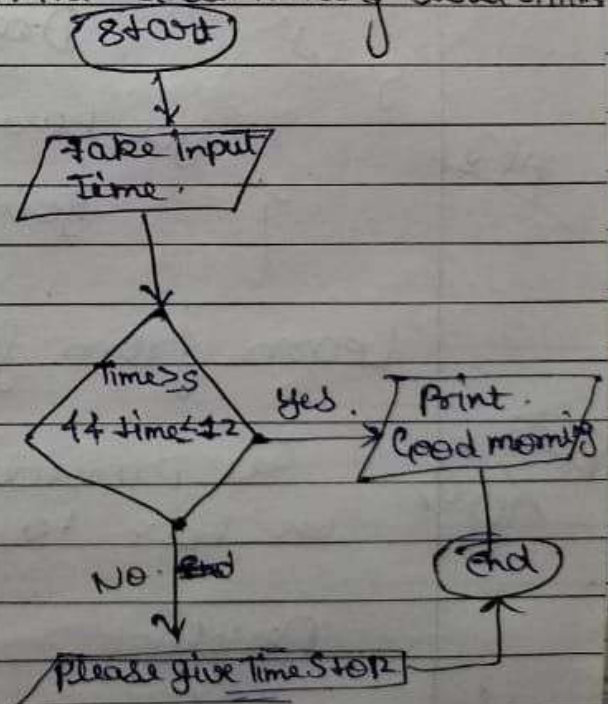 Start
Take Input
Time.
Time>5
&& time<12
Yes.
Print.
Good morning
NO.
End
Please give Time 5 to 12